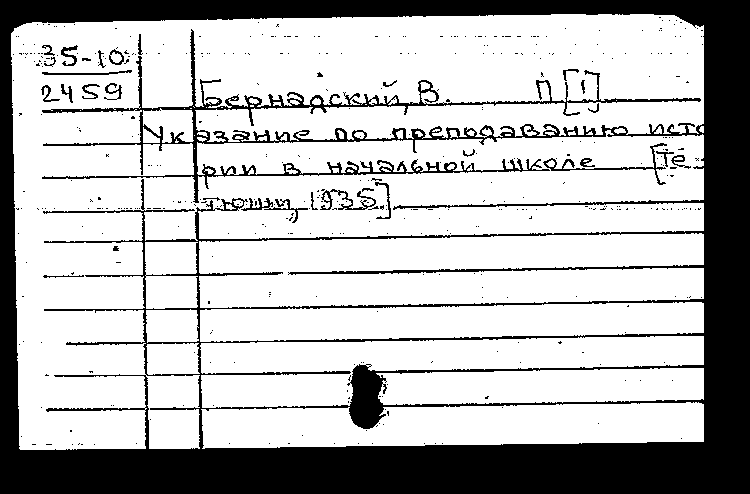 35-10
2459
Бернадский, В. П [!]
Указание по преподаванию исто
рии в начальной школе [Тё-
тюши, 1935]